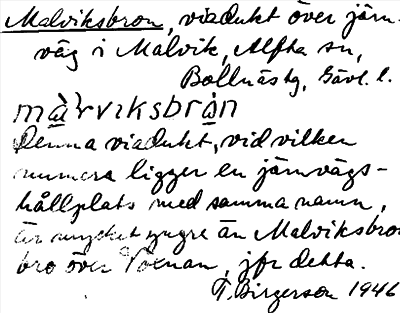 Malviksbron, viadukt över järn-
väg i Malvik, Alfta sn,
Bollnäs tg, Gävl. l.
màrviksbrón
Denna viadukt, vid vilken
numera ligger en järnvägs-
hållplats med samma namn,
är mycket yngre än Malviksbron
bro över Voxnan, jfr detta.
T. Birgerson 1946